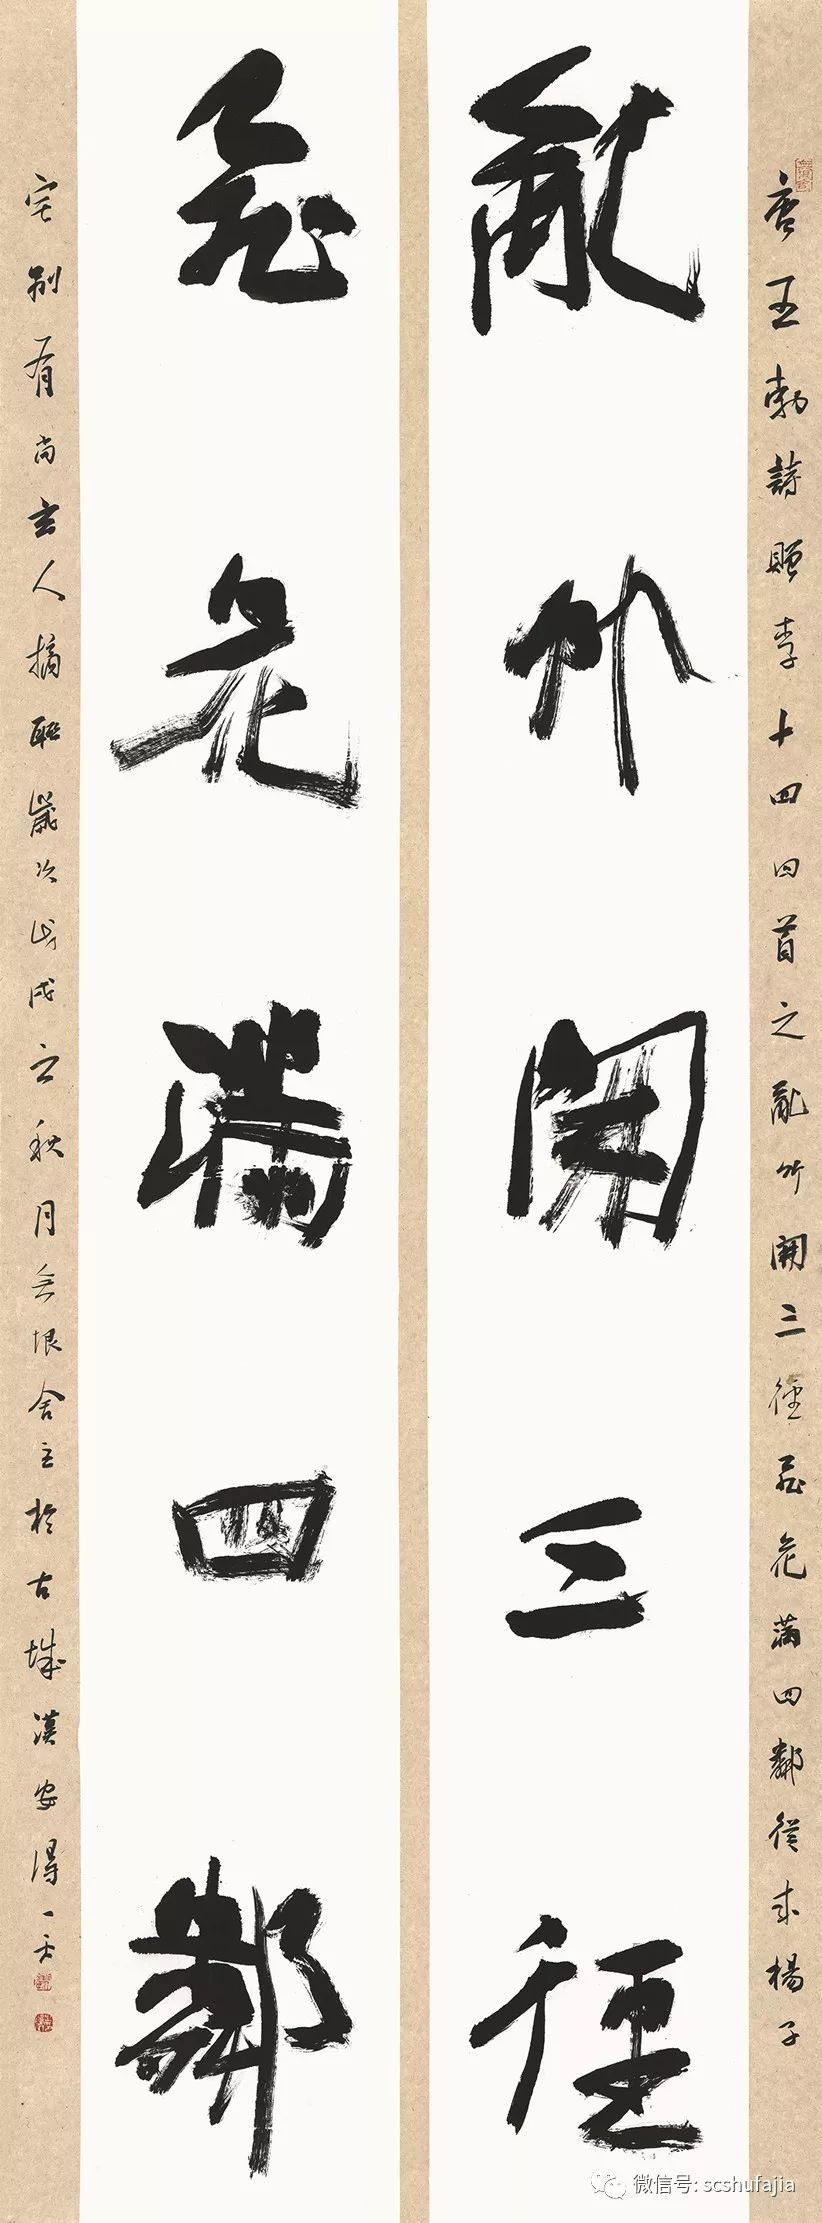 唐王勃詩贈李十四四首之亂竹開三徑飛花滿四鄰從來楊子
亂竹開三徑
飛花滿四鄰
宅別有尚玄人摘聯歲次戊戌之秋月無垠舍主於古城漢安得一
微信号: scshufajia